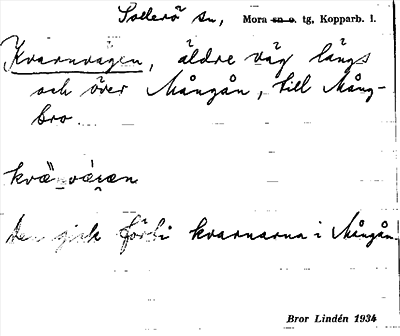 Sollerö sn, Mora sn o. tg, Kopparb. l.
Kvarnvägen, äldre väg längs
och över Mångån, till Mång-
bro.
Den gick förbi kvarnarna i Mångån.
Bror Lindén 1934